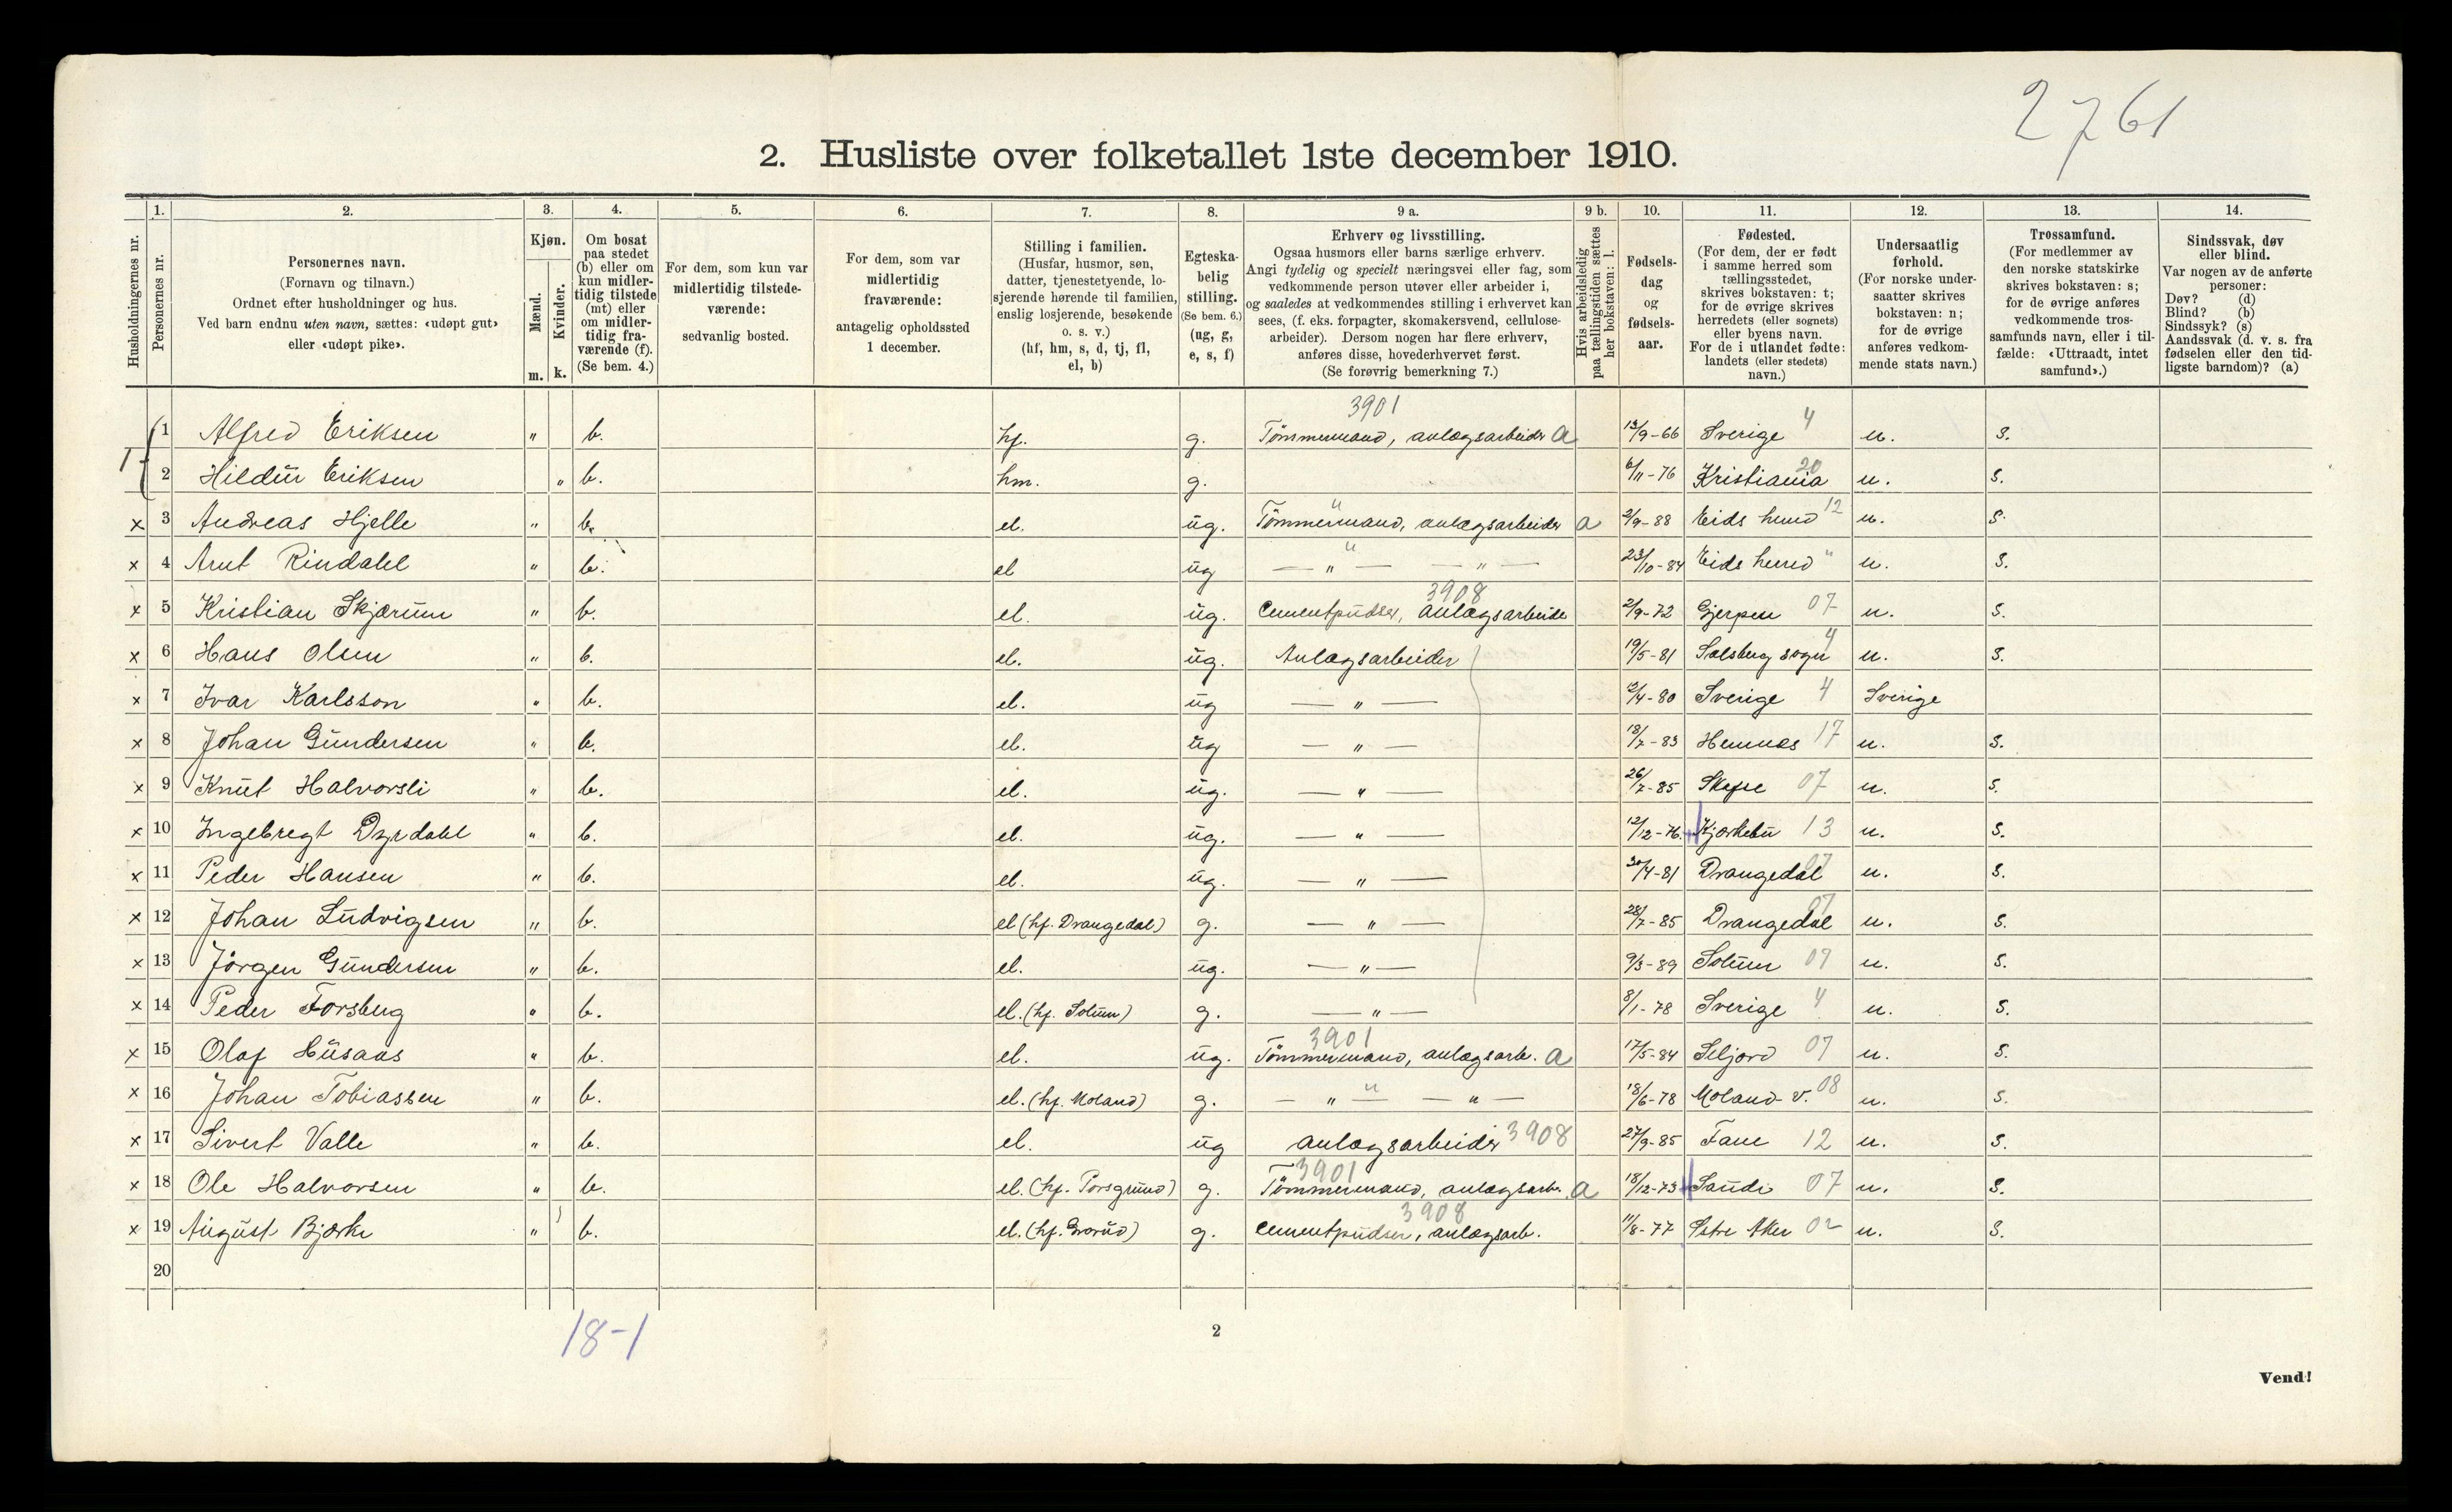 2761
2. Husliste over folketallet 1ste december 1910.
Husholdningernes nr.
1. Personernes nr.
2. Personernes navn. (Fornavn og tilnavn.) Ordnet efter husholdninger og hus. Ved barn endnu uten navn, sættes: «udøpt gut» eller «udøpt pike».
3. Kjøn. Mænd. m. Kvinder. k.
4. Om bosat paa stedet (b) eller om kun midlertidig tilstede (mt) eller om midlertidig fraværende (f). (Se bem. 4.)
5. For dem, som kun var midlertidig tilstedeværende: sedvanlig bosted.
6. For dem, som var midlertidig fraværende: antagelig opholdssted 1 december.
7. Stilling i familien. (Husfar, husmor, søn, datter, tjenestetyende, losjerende hørende til familien, enslig losjerende, besøkende o. s. v.) (hf, hm, s, d, tj, fl, el, b)
8. Egteskabelig stilling. (Se bem. 6.) (ug, g, e, s, f)
9 a. Erhverv og livsstilling. Ogsaa husmors eller barns særlige erhverv. Angi tydelig og specielt næringsvei eller fag, som vedkommende person utøver eller arbeider i, og saaledes at vedkommendes stilling i erhvervet kan sees, (f. eks. forpagter, skomakersvend, cellulosearbeider). Dersom nogen har flere erhverv, anføres disse, hovederhvervet først. (Se forøvrig bemerkning 7.)
9 b. Hvis arbeidsledig paa tællingstiden sættes her bokstaven: l.
10. Fødselsdag og fødselsaar.
11. Fødested. (For dem, der er født i samme herred som tællingsstedet, skrives bokstaven: t; for de øvrige skrives herredets (eller sognets) eller byens navn. For de i utlandet fødte: landets (eller stedets) navn.)
12. Undersaatlig forhold. (For norske undersaatter skrives bokstaven: n; for de øvrige anføres vedkommende stats navn.)
13. Trossamfund. (For medlemmer av den norske statskirke skrives bokstaven: s; for de øvrige anføres vedkommende trossamfunds navn, eller i tilfælde: «Uttraadt, intet samfund».)
14. Sindssvak, døv eller blind. Var nogen av de anførte personer: Døv? (d) Blind? (b) Sindssyk? (s) Aandssvak (d. v. s. fra fødselen eller den tidligste barndom)? (a)
3901
1 1 Alfred Eriksen " b. hf. g. Tömmermand, anlægsarbeider a 13/9-66 Sverige 4 n. s.
2 Hildur Eriksen " b. hm. g. 6/11-76 Kristiania 20 n. s.
x 3 Andreas Hjelle " b. el. ug. Tömmermand, anlægsarbeider a 2/9-88 Eids herred 12 n. s.
x 4 Arnt Rindahl " b. el ug — " — — " — 23/10-84 Eids herred " n. s.
3908
x 5 Kristian Skjærum " b. el. ug. Cementpudser, anlægsarbeider 2/9-72 Gjerpen 07 n. s.
x 6 Hans Olsen " b. el. ug. Anlægsarbeider 19/5-81 sogn 4 n. s.
x 7 Ivar Karlsson " b. el. ug — " — 12/4-80 Sverige 4 Sverige
x 8 Johan Gundersen " b. el. ug — " — 18/7-83 Hemnes 17 n. s.
x 9 Knut Halvorsli " b. el. ug. — " — 26/7-85 Skafse 07 n. s.
x 10 Ingebregt Dyrdahl " b. el. ug. — " — 12/12-76 Kjørkebu 13 n. s.
x 11 Peder Hansen " b. el. ug. — " — 30/4-81 Drangedal 07 n. s.
x 12 Johan Ludvigsen " b. el (hf. Drangedal) g. — " — 28/7-85 Drangedal 07 n. s.
x 13 Jörgen Gundersen " b. el. ug. — " — 9/3-89 Solum 07 n. s.
x 14 Peder Forsberg " b. el. (hf. Solum) g. — " — 8/1-78 Sverige 4 n. s.
3901
x 15 Olaf Husaas " b. el. ug. Tömmermand, anlægsarb. a 17/5-84 Seljord 07 n. s.
x 16 Johan Tobiassen " b. el. (hf. Moland) g. — " — — " — 18/6-78 Moland v. 08 n. s.
x 17 Sivert Valle " b. el. ug anlægsarbeider 3908 27/9-85 Fane 12 n. s.
3901
x 18 Ole Halvorsen " b. el. (hf. Porsgrund) g. Tömmermand, anlægsarb. a 18/12-73 Saude 07 n. s.
3908
x 19 August Bjørke " b. el. (hf. Grorud) g. Cementpudser, anlægsarb. 11/8-77 Østre Aker 02 n. s.
20
18-1
2
Vend!